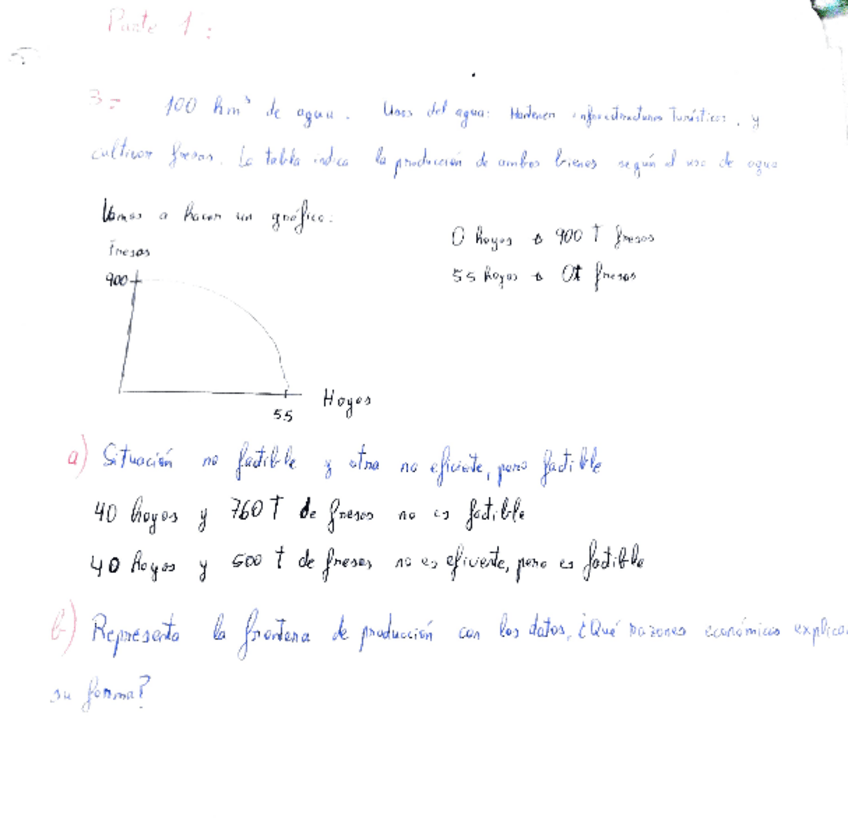 Parte 1:
3= 100 hm³ de agua. Usos del agua: Mantener infraestructuras Turísticas, y
cultivar fresas. La tabla indica la producción de ambos bienes según el uso de agua
Vamos a hacer un gráfico:
0 hoyos → 900 T fresas
55 hoyos → 0t fresas
Fresas
900
55
Hoyos
a) Situación no factible y otra no eficiente, pero factible
40 hoyos y 760 T de fresas no es factible
40 hoyos y 500 t de fresas no es eficiente, pero es factible
b) Representa la frontera de producción con los datos, ¿Qué razones económicas explica
su forma?